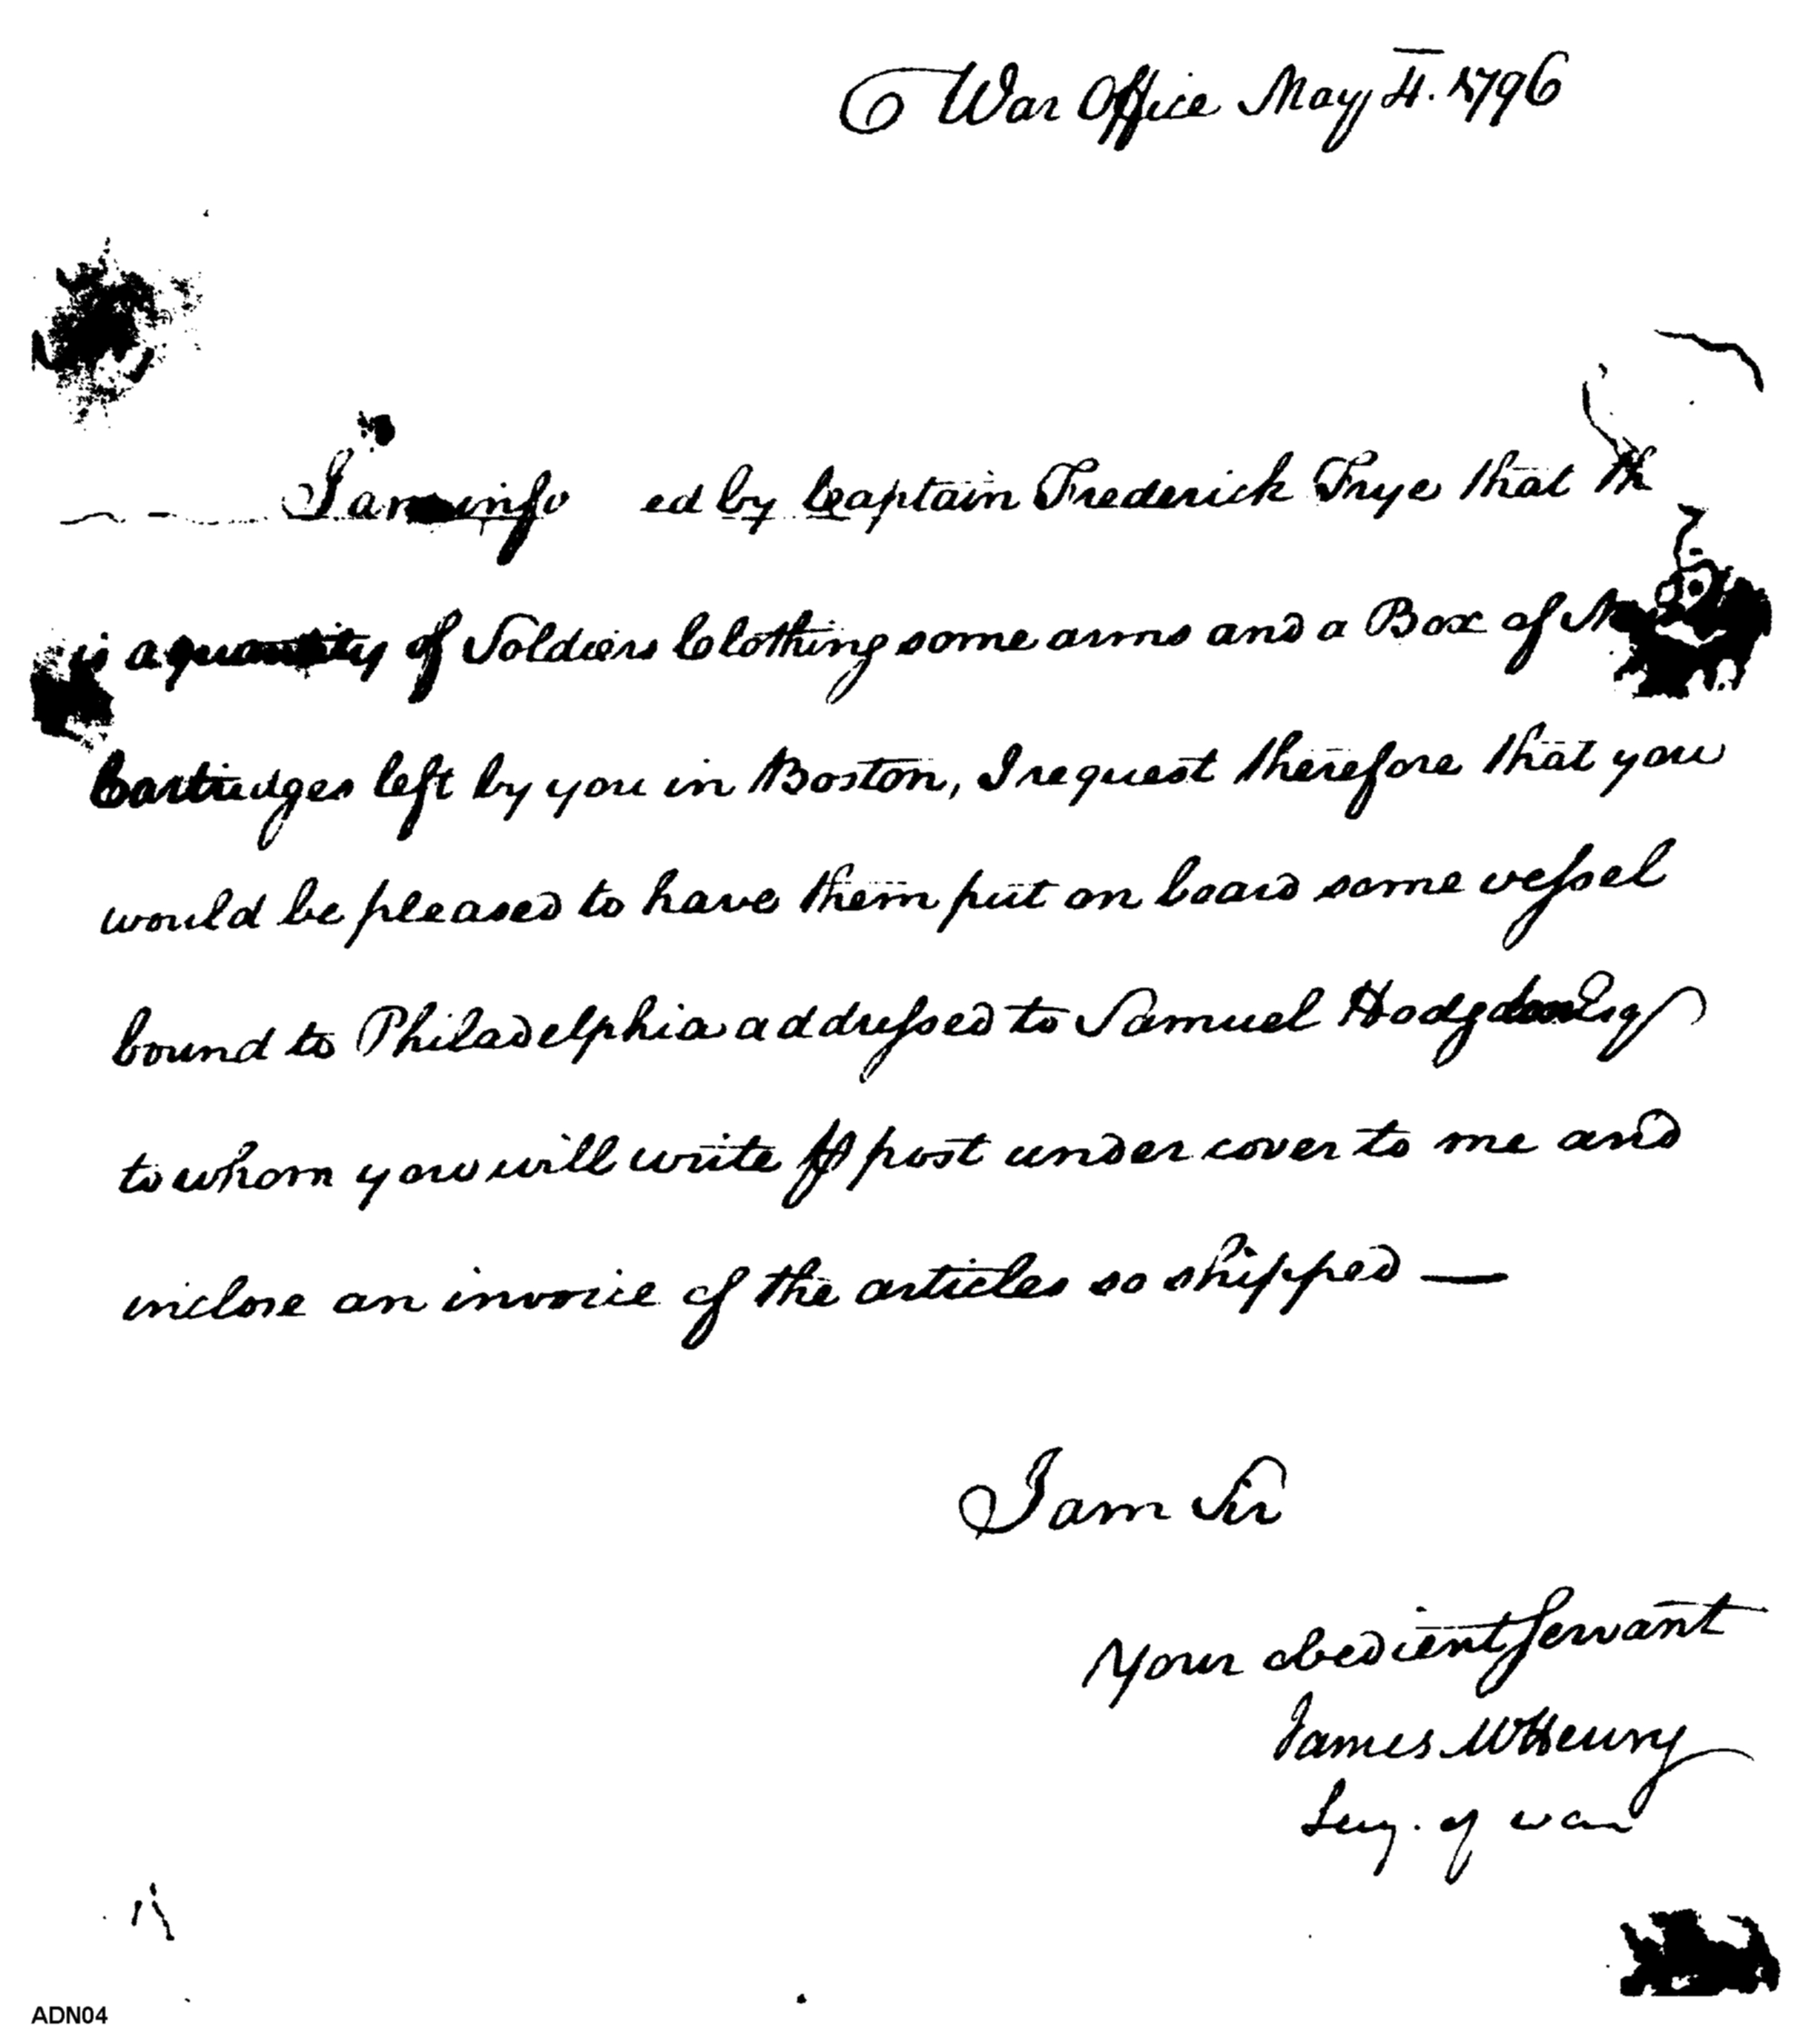 War Office May 4. 1796
I am info ed by Captain Frederick Frye that
is a quantity of Soldiers Clothing some arms and a Box of
Cartridges left by you in Boston, I request therefore that you
would be pleased to have them put on board some vessel
bound to Philadelphia addressed to Samuel Hodgdon Esq
to whom you will write post under cover to me and
inclose an invoice of the articles so shipped —
I am Sir
Your obedient Servant
James McHenry
Secy. of war
ADN04